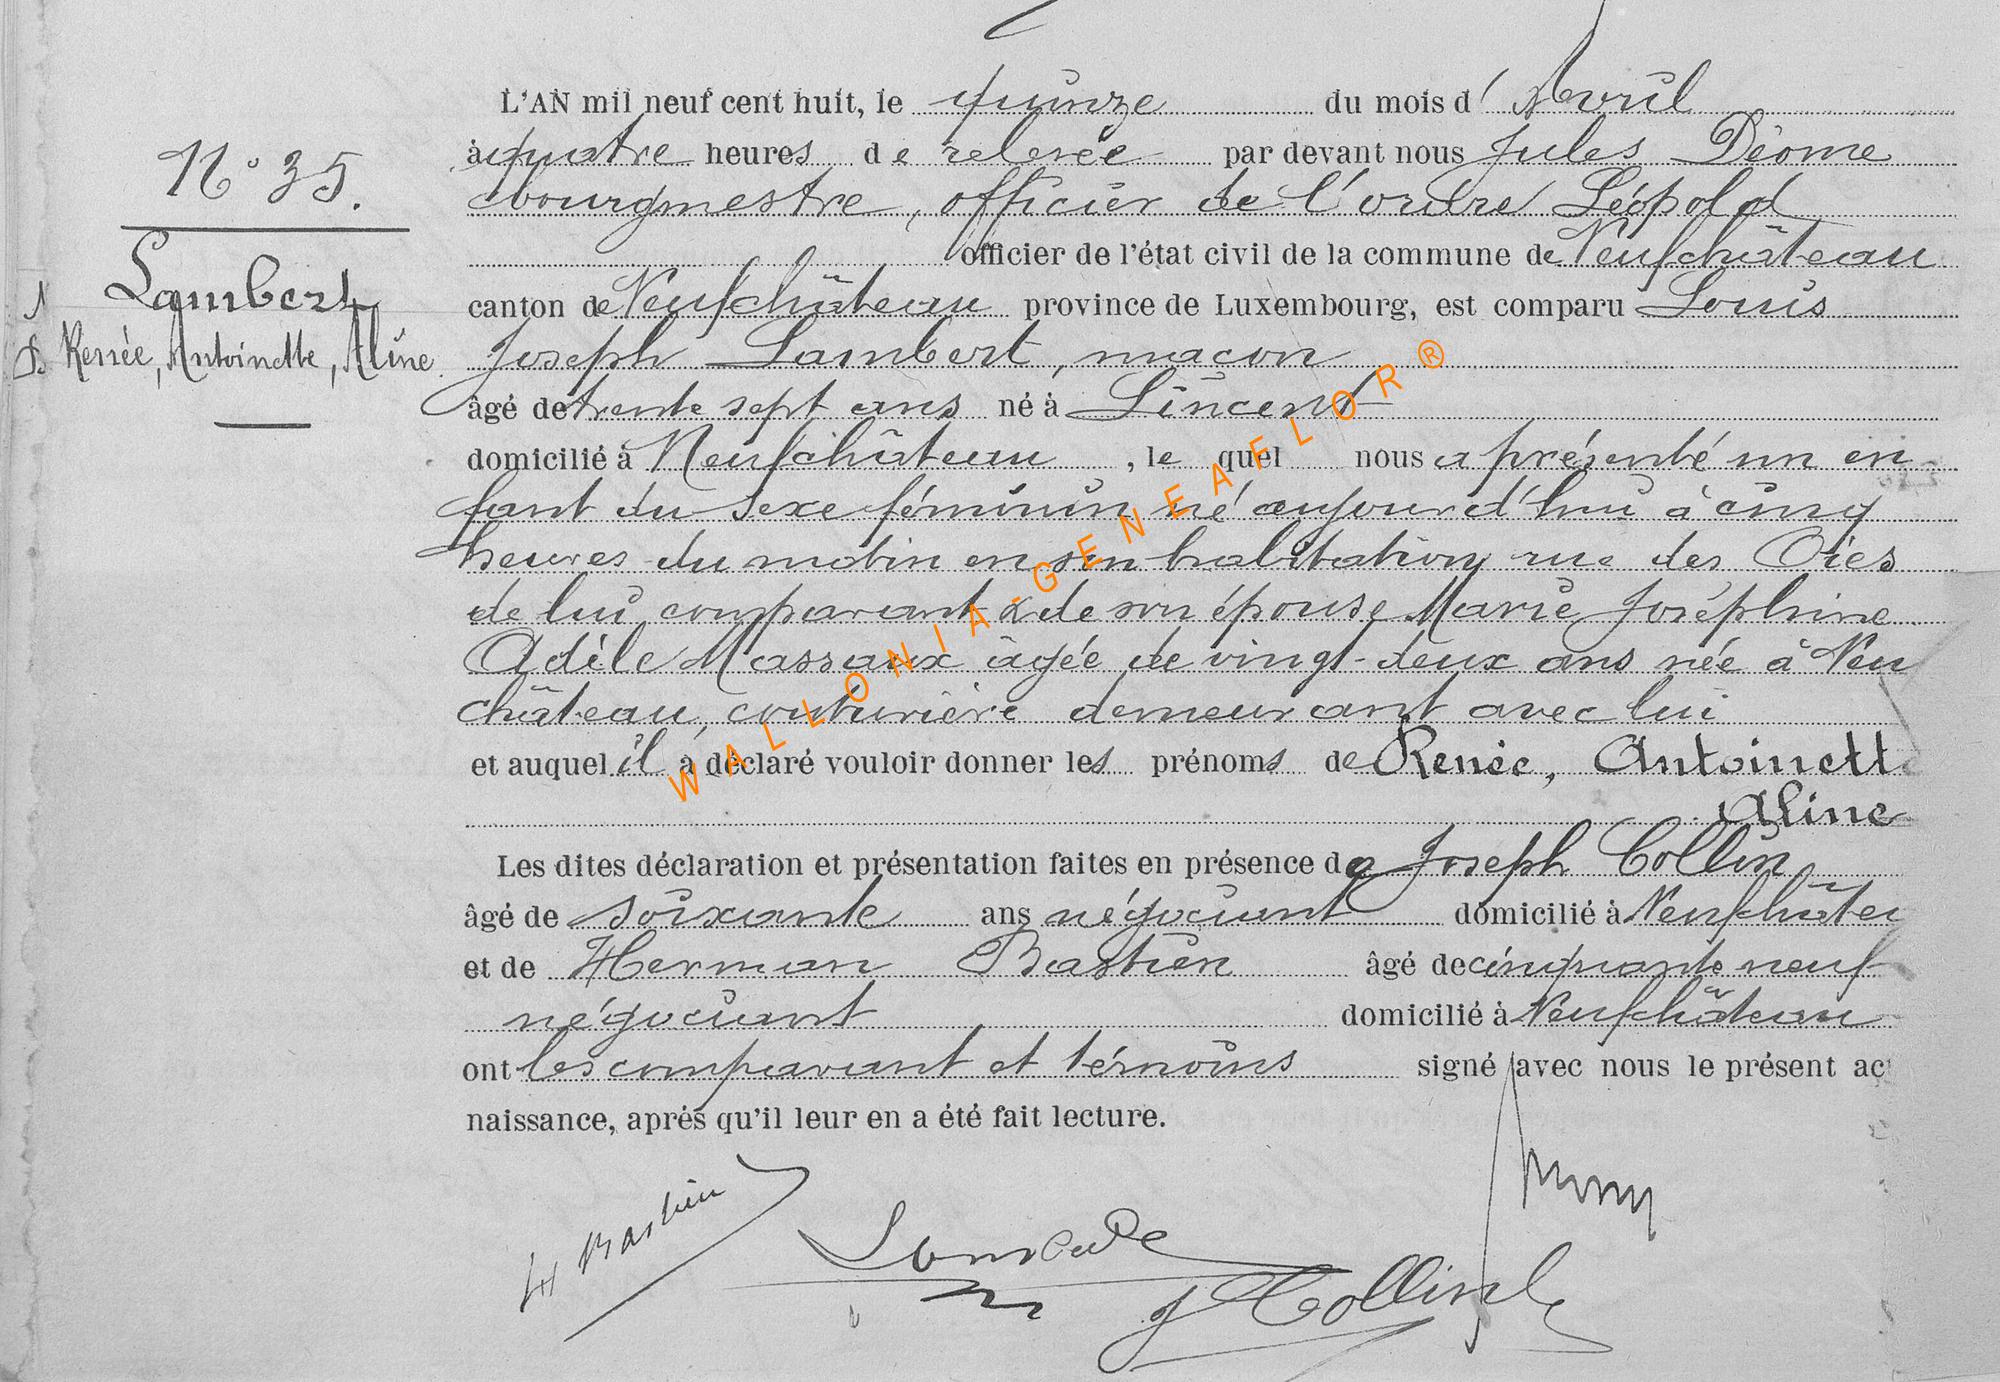 L'AN mil neuf cent huit, le quinze du mois d' Avril
N° 35.
à quatre heures de relevée par devant nous Jules Déome
bourgmestre, officier de l'ordre Léopold
officier de l'état civil de la commune de Neufchâteau
Lambert
canton de Neufchâteau province de Luxembourg, est comparu Louis
Renée, Antoinette, Aline.
Joseph Lambert, maçon
âgé de trente sept ans né à Lincent
domicilié à Neufchâteau, le quel nous a présenté un en
fant du sexe féminin né aujourd'hui à cinq
heures du matin en son habitation rue des Oies
de lui comparant & de son épouse Marie Joséphine
Adèle Massaux âgée de vingt-deux ans née à Neu
château, couturière demeurant avec lui
et auquel il a déclaré vouloir donner les prénoms de Renée, Antoinett
Aline
Les dites déclaration et présentation faites en présence de Joseph Collin
âgé de soixante ans négociant domicilié à Neufchâte
et de Herman Bastien âgé de cinquante neuf
négociant domicilié à Neufchâteau
ont les comparant et témoins signé avec nous le présent ac
naissance, après qu'il leur en a été fait lecture.
H Bastien
J Collin
WALLONIA-GENEAFLOR®